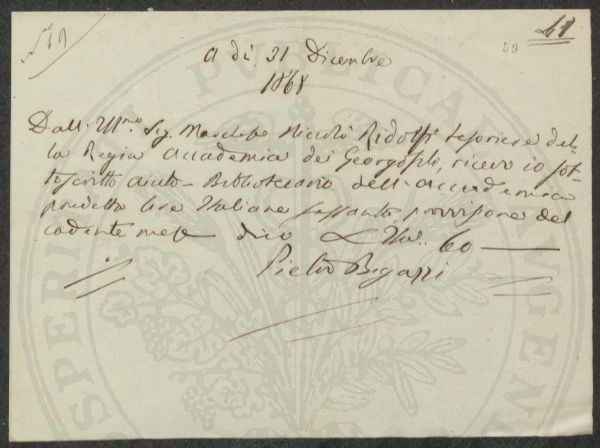 N 59
41
59
A dì 31 Dicembre
1868
Dall' Ill.mo Sig. Marchese Niccolò Ridolfi tesoriere del-
la Regia Accademia dei Georgofili, ricevo io sot-
toscritto aiuto-Bibliotecario dell'accademia
predetta lire Italiane sessanta provvisione del
cadente mese dico £ Ita.. 60
Pietro Bigazzi
PROSPERITATI PUBLICAE AUGENDAE